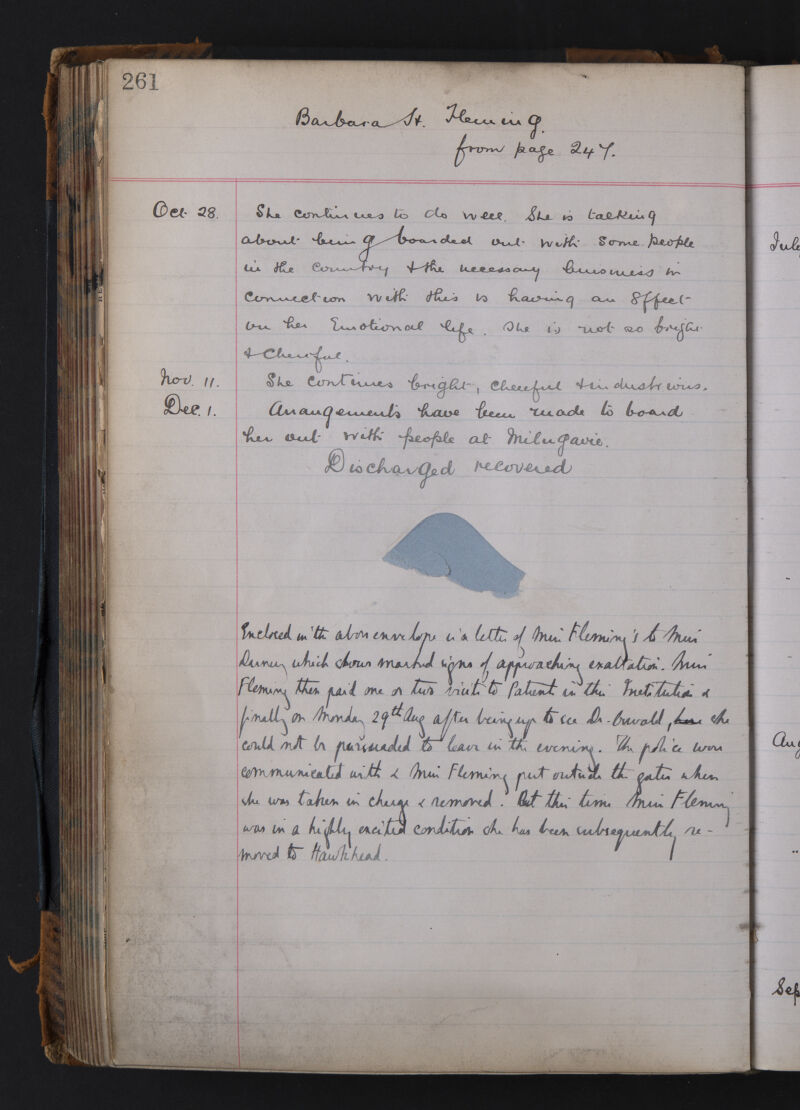 261
Barbara St. Fleming.
from page 247.
Oct 28. She continues to do well. She is talking
about being boarded out with some people
in the country & the necessary business in
connection with this is having an Effect
on her Emotional life. She is not so bright
& Cheerful.
Nov. 11. She continues bright, cheerful & industrious.
Dec. 1. Arrangements have been made to board
her out with people at Milngavie.
Discharged recovered
Enclosed with above envelope is a letter of Miss Fleming's to Miss
which shows marked signs of approaching exaltation. Miss
Fleming then paid one or two visits to Patient in this Institution &
finally on Monday 29th Aug after being up to see Dr. Oswald, she
could not be persuaded to leave in the evening. The police were
communicated with & Miss Fleming put outside the gates when
she was taken in charge & removed. At this time Miss Fleming
was in a highly excited condition she has been subsequently re-
moved to Hawkhead.
July
Aug
Sep